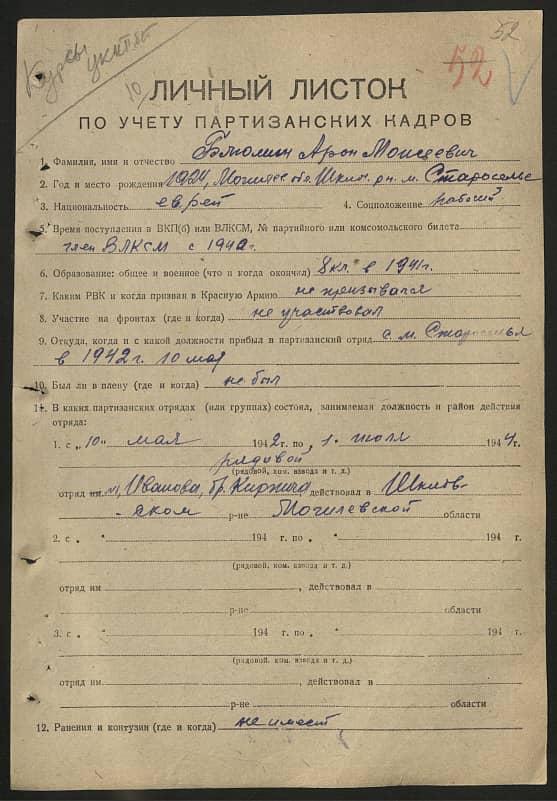 52
Курсы
10
52
ЛИЧНЫЙ ЛИСТОК
ПО УЧЕТУ ПАРТИЗАНСКИХ КАДРОВ
1. Фамилия, имя и отчество Блюмин Арон Моисеевич
2. Год и место рождения 1924, Могилев обл. Шкл. рн. м. Староселье
3. Национальность еврей 4. Соцположение рабочий
5. Время поступления в ВКП(б) или ВЛКСМ, № партийного или комсомольского билета
член ВЛКСМ с 1942г.
6. Образование: общее и военное (что и когда окончил) 8 кл. в 1941г.
7. Каким РВК и когда призван в Красную Армию не призывался
8. Участие на фронтах (где и когда) не участвовал
9. Откуда, когда и с какой должности прибыл в партизанский отряд с м. Староселья
в 1942г. 10 мая
10. Был ли в плену (где и когда) не был
11. В каких партизанских отрядах (или группах) состоял, занимаемая должность и район действия
отряда:
1. с „10" мая 1942 г. по „1. июля 1944 г.
рядовой
(рядовой, ком. взвода и т. д.)
отряд им. Иванова, бр. Кирпича действовал в Шклов-
ском р-не Могилевской области
2. с „ " 194 г. по „ " 194 г.
(рядовой, ком. взвода и т. д.)
отряд им , действовал в
р-не области
3. с „ " 194 г. по „ " 194 г.
(рядовой, ком. взвода и т. д.)
отряд им , действовал в
р-не области
12. Ранения и контузии (где и когда) не имеет